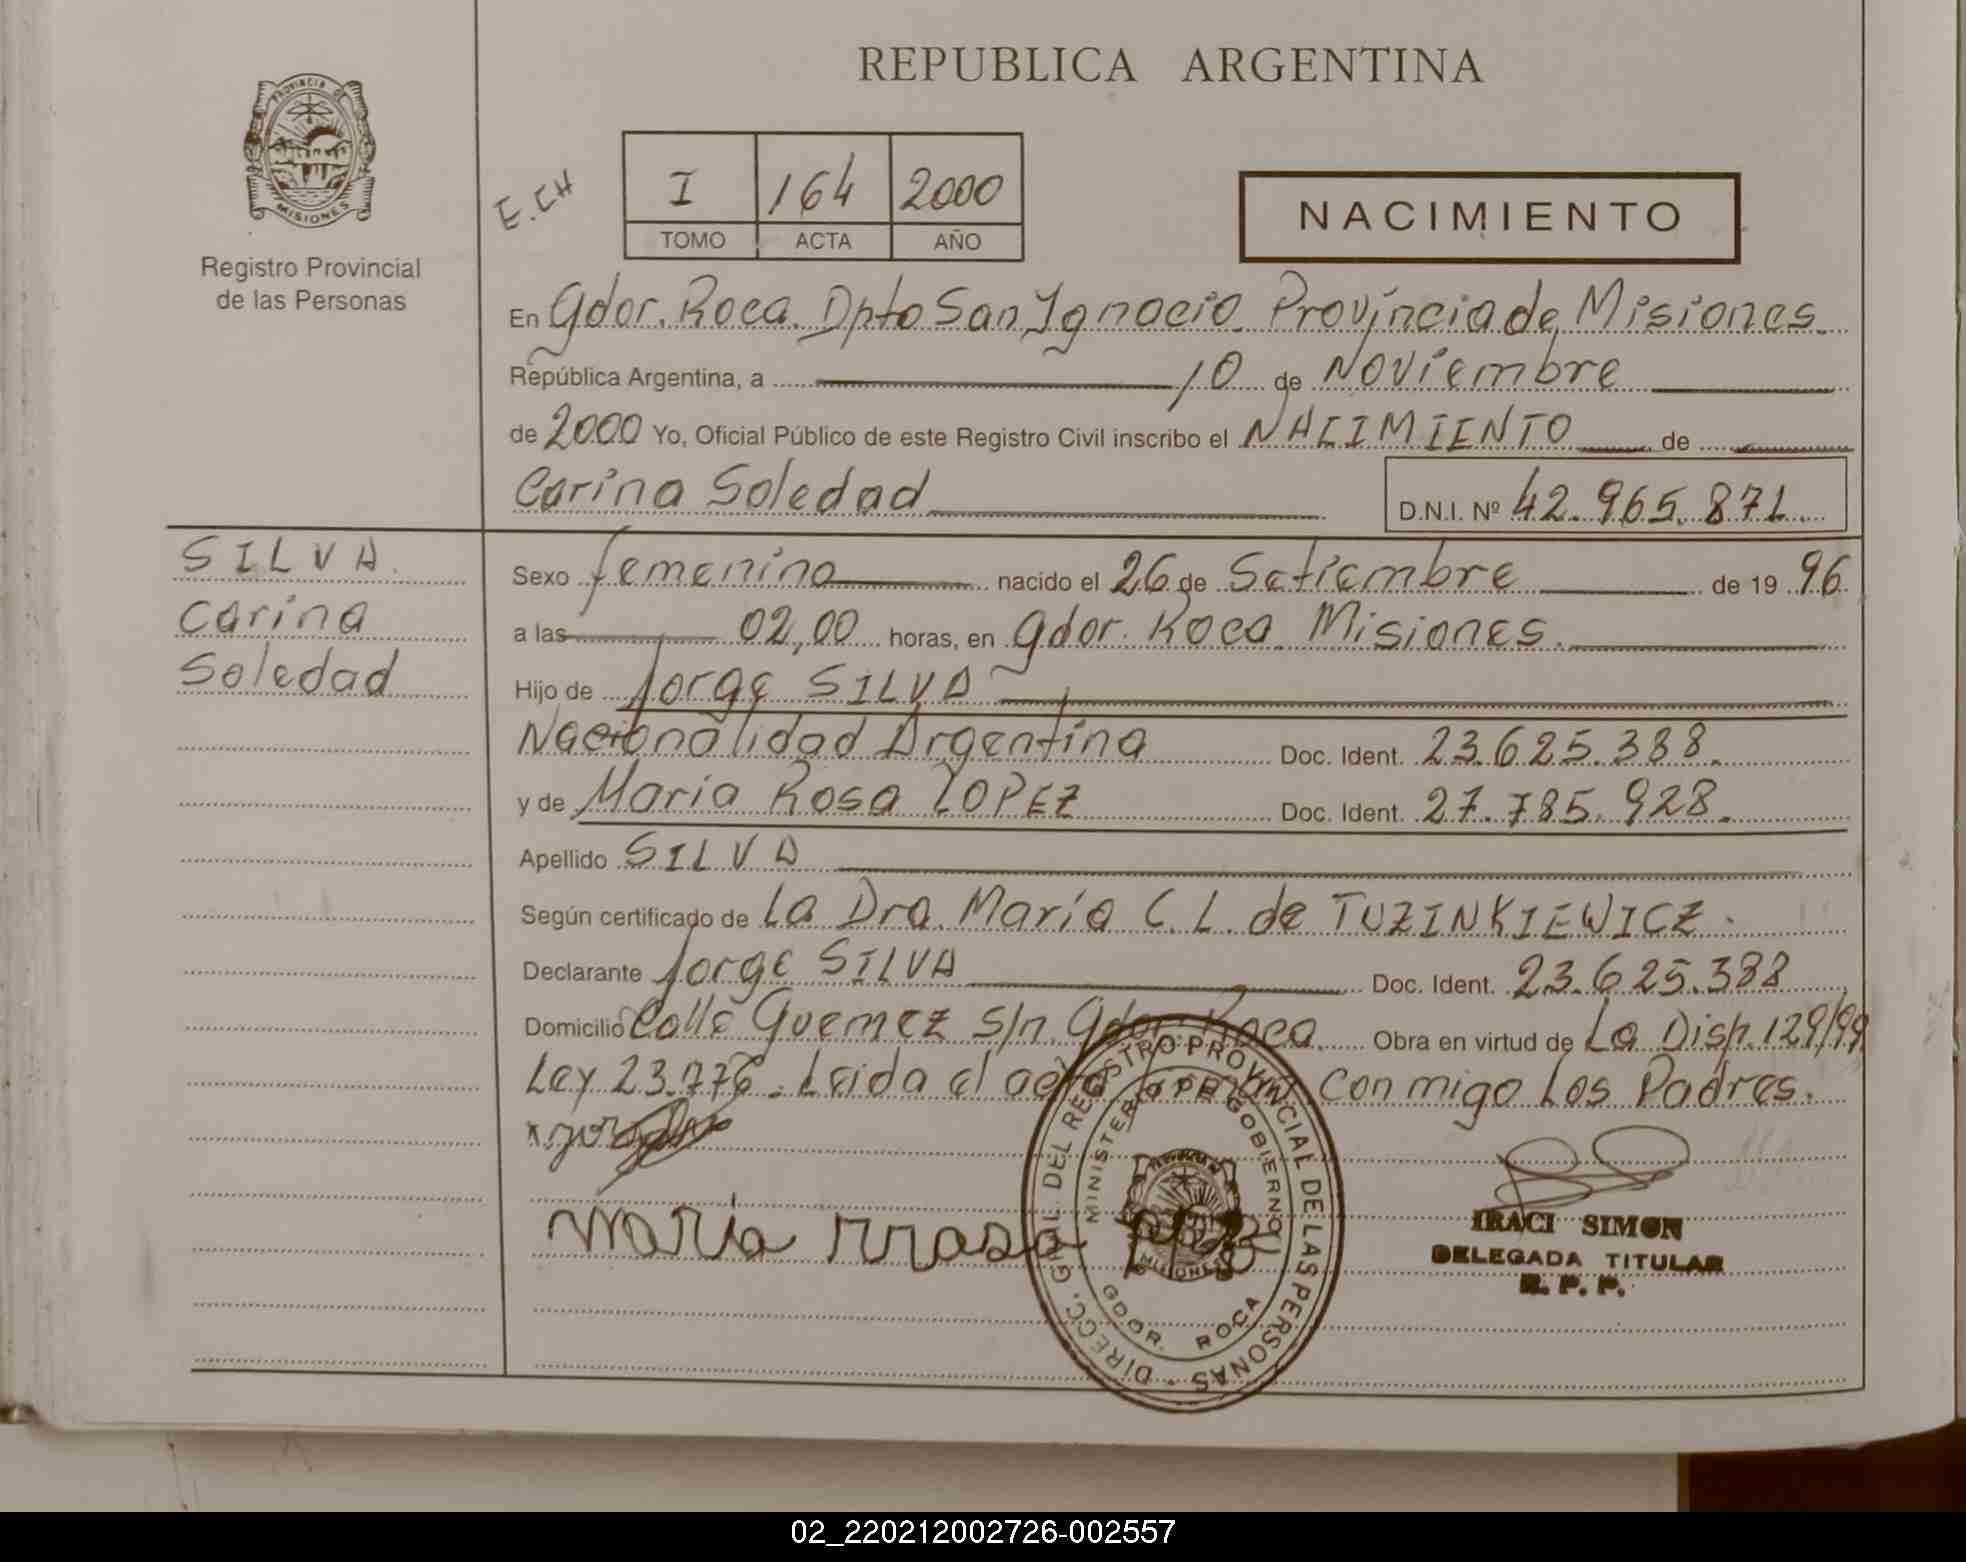 REPUBLICA ARGENTINA
PROVINCIA DE
MISIONES
Registro Provincial
de las Personas
E.CH
I 164 2000
TOMO ACTA AÑO
NACIMIENTO
En Gdor. Roca. Dpto San Ignacio. Provincia de Misiones.
República Argentina, a 10 de Noviembre
de 2000 Yo, Oficial Público de este Registro Civil inscribo el NACIMIENTO de
Carina Soledad D.N.I. Nº 42.965.871.
SILVA
Carina
Soledad
Sexo femenino nacido el 26 de Setiembre de 19 96
a las 02,00 horas, en Gdor. Roca Misiones.
Hijo de Jorge SILVA
Nacionalidad Argentina Doc. Ident. 23.625.388.
y de María Rosa LOPEZ Doc. Ident. 27.785.928.
Apellido SILVA
Según certificado de La Dra. María C. L. de TUZINKIEWICZ.
Declarante Jorge SILVA Doc. Ident. 23.625.388
Domicilio Calle Guemez s/n Gdor. Roca. Obra en virtud de La Disp. 129/99
Ley 23.776. Leida el acta firman conmigo Los Padres.
maria rrosa
DIRECC. GRAL. DEL REGISTRO PROVINCIAL DE LAS PERSONAS
MINISTERIO DE GOBIERNO
MISIONES
GDOR. ROCA
IRACI SIMON
DELEGADA TITULAR
R. P. P.
02_220212002726-002557